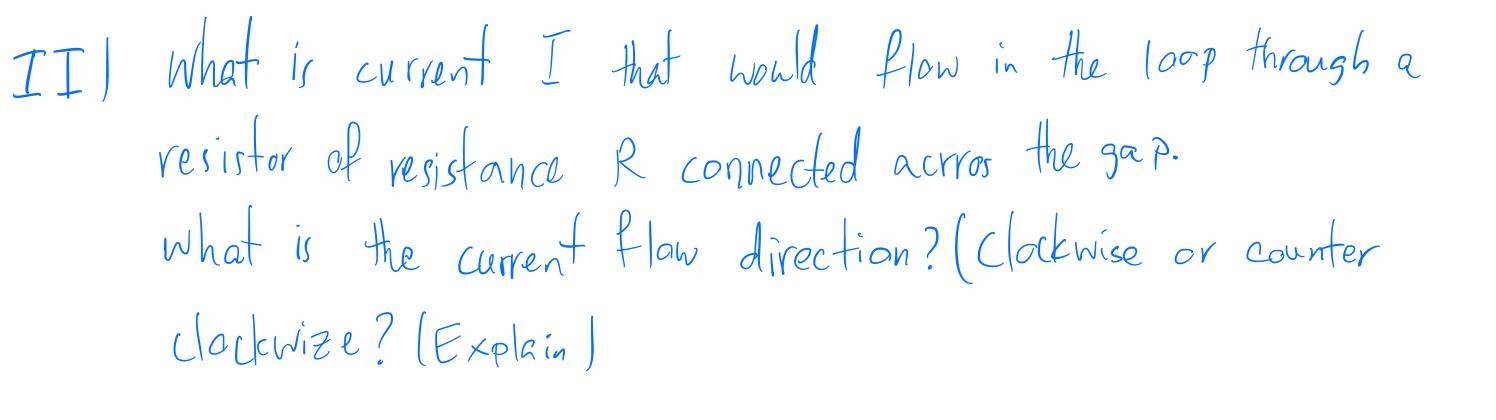 II) What is current I that would flow in the loop through a
resistor of resistance R connected acrros the gap.
what is the current flow direction? (Clockwise or counter
clockwize? (Explain)